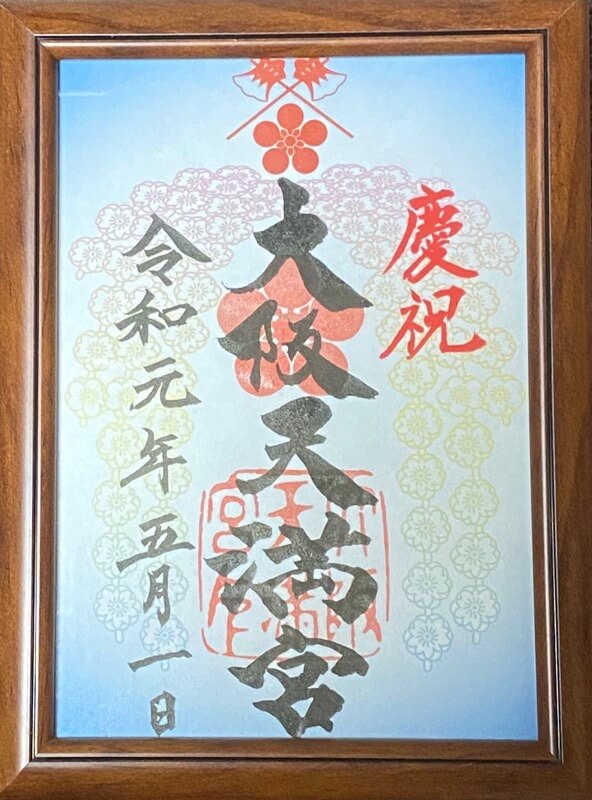 慶祝
大阪天満宮
令和元年五月一日